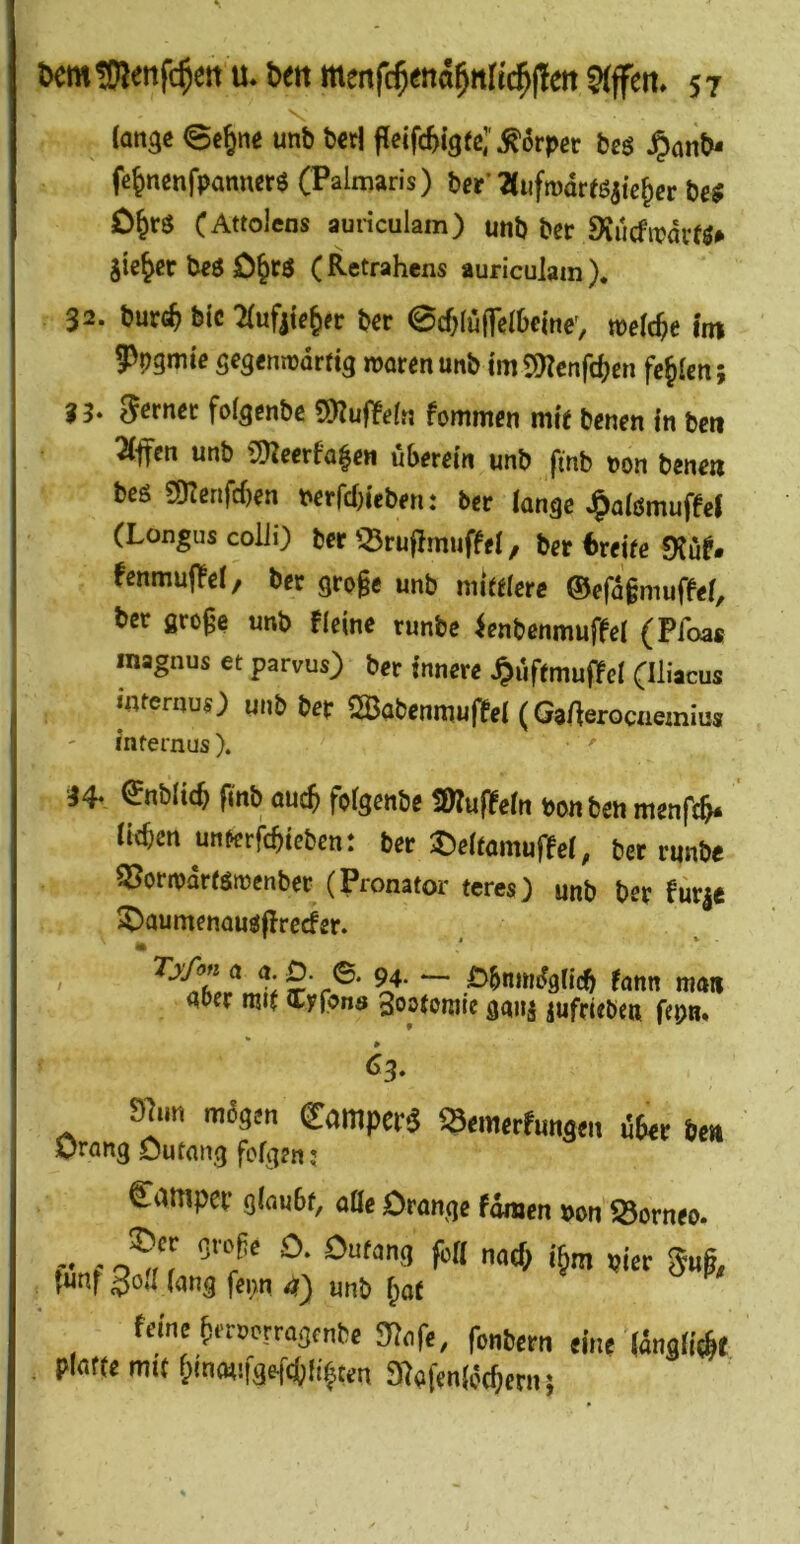 dem Menschen u. den menschenähnlichsten Affen. 57
lange Sehne und der fleischigte Körper des Hand-
sehnenspanners (Palmaris) der Aufwärtszieher des
Ohrs (Attolens auriculam) und der Rückwärts-
zieher des Ohrs (Retrahens auriculam).
32. durch die Aufzieher der Schlüsselbeine, welche im
Pygmie gegenwärtig waren und im Menschen fehlen;
33. Ferner folgende Muskeln kommen mit denen in den
Affen und Meerkatzen überein und sind von denen
des Menschen verschieden: der lange Halsmuskel
(Longus colli) der Brustmuskel, der breite Rük-
kenmuskel, der große und mittlere Gesäßmuskel,
der große und kleine runde Lendenmuskel (Psoas
magnus et parvus) der innere Hüftmuskel (Iliacus
internus) und der Wadenmuskel (Gasterocnemius
internus).
34. Endlich sind auch folgende Muskeln von den mensch-
lichen unterschieden: der Deltamuskel, der runde
Vorwärtswender (Pronator teres) und der kurze
Daumenausstrecker.
Tyson a a. O. S. 94. — Ohnmöglich kann man
aber mit Tysons Zootomie ganz zufrieden seyn.
63.
Nun mögen Campers Bemerkungen über den
Orang Outang folgen:
Camper glaubt, alle Orange kämen von Borneo.
Der große O. Outang soll nach ihm vier Fuß,
fünf Zoll lang seyn a) und hat
keine hervorragende Nase, sondern eine länglichte
platte mit hinaufgeschlitzten Nasenlöchern;